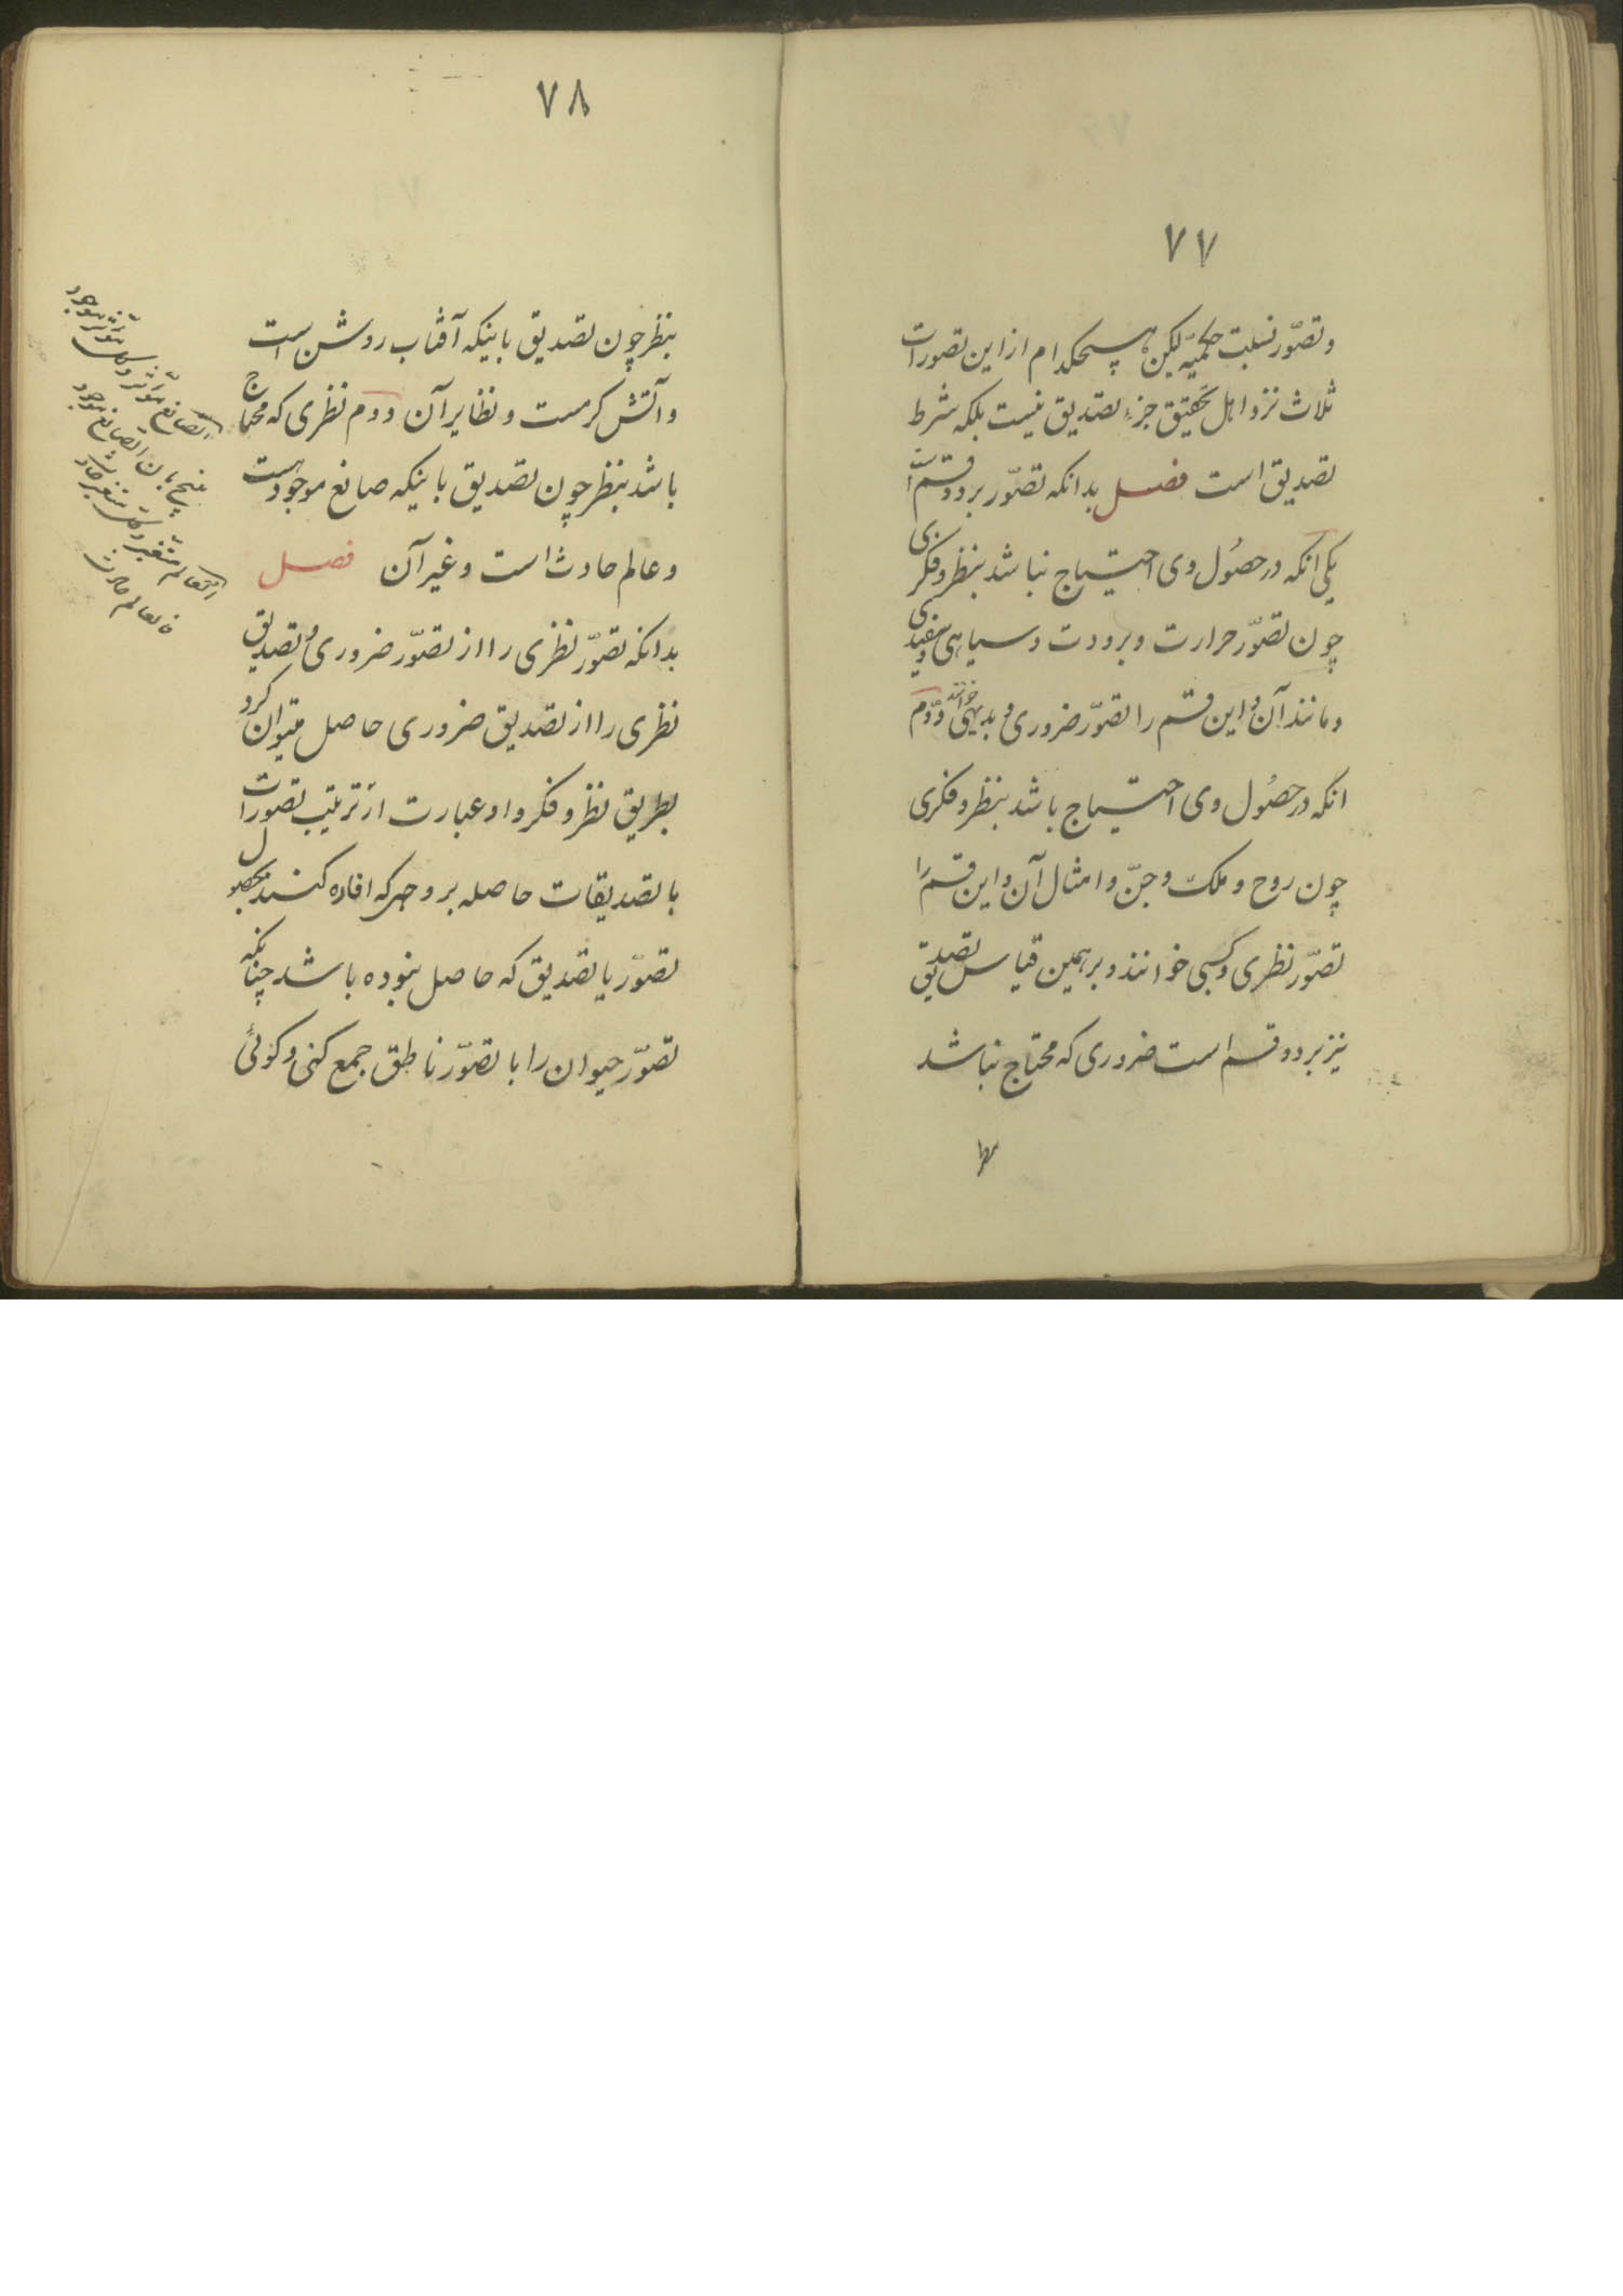 ۷۷
و تصوّر نسبت حکمیّه لیکن هیچکدام از این تصورات
ثلاث نزد اهل تحقیق جزء تصدیق نیست بلکه شرط
تصدیق است فصل بدانکه تصوّر بر دو قسم است
یکی انکه در حصُول وی احتیاج نباشد بنظر و فکری
چون تصوّر حرارت و برودت و سیاهی و سفیدی
و مانند آن و این قسم را تصوّر ضروری و بدیهی خوانند دوّم
انکه در حصُول وی احتیاج باشد بنظر و فکری
چون روح و ملک و جنّ و امثال آن و این قسم را
تصوّر نظری و کسبی خوانند و بر همین قیاس تصدیق
نیز بر دو قسم است ضروری که محتاج نباشد
۷۸
بنظر چون تصدیق باینکه آفتاب روشن است
و آتش کرمست و نظایر آن دوم نظری که محتاج
باشد بنظر چون تصدیق باینکه صانع موجود است
و عالم حادث است و غیر آن فصل
بدانکه تصوّر نظری را از تصوّر ضروری و تصدیق
نظری را از تصدیق ضروری حاصل میتوان کرد
بطریق نظر و فکر و او عبارت از ترتیب تصورات
یا تصدیقات حاصله بر وجهی که افاده کند بحصول
تصوّر یا تصدیق که حاصل نبوده باشد چنانکه
تصوّر حیوان را با تصوّر ناطق جمع کنی و کوئی
الصانع مؤثر وکل مؤثر موجود
ینتج بان الصانع موجود
العالم متغیر وکل متغیر حادث
فالعالم حادث